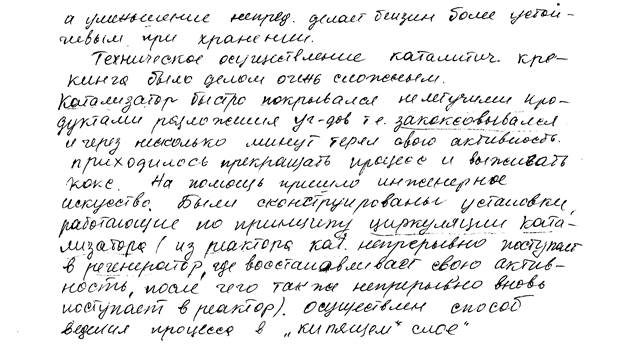 а уменьшение непред. делает бензин более устой-
чивым при хранении.
Техническое осуществление каталитич. кре-
кинга было делом очень сложным.
Катализатор быстро покрывался нелетучими про-
дуктами разложения уг-дов т.е. закоксовывался
и через несколько минут терял свою активность.
приходилось прекращать процесс и выжигать
кокс. На помощь пришло инженерное
искусство. Были сконструированы установки,
работающие по принципу циркуляции ката-
лизатора (из реактора кат. непрерывно поступает
в регенератор, где восстанавливает свою актив-
ность, после чего также непрерывно вновь
поступает в реактор). осуществлен способ
ведения процесса в „кипящем" слое"